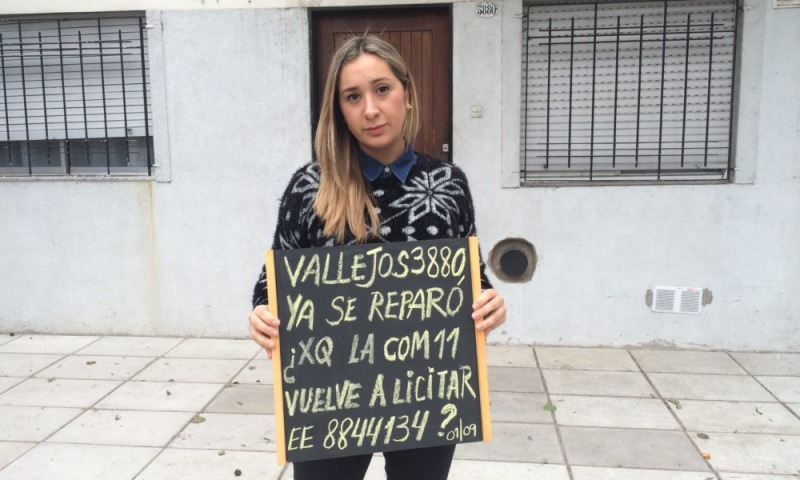 3880
VALLEJOS 3880,
YA SE REPARÓ
¿XQ LA COM 11
VUELVE A LICITAR
EE 8844134? 01/09